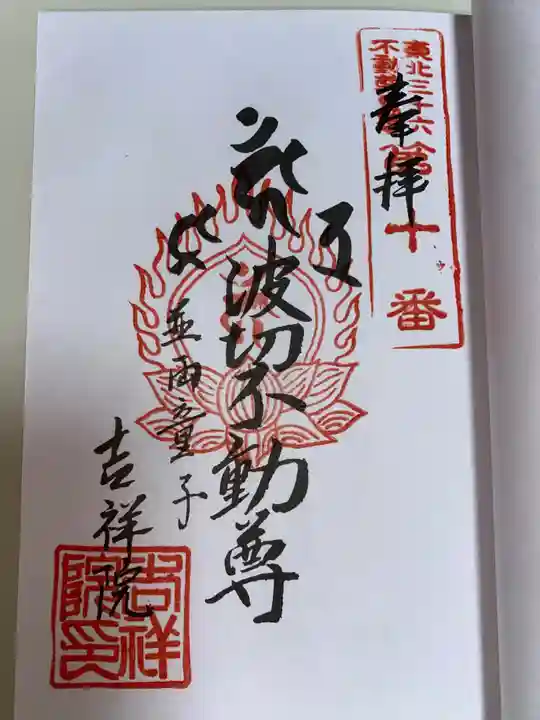 東北三十六
不動尊
第十番
奉拝
波切不動尊
並両童子
吉祥院
吉祥院印